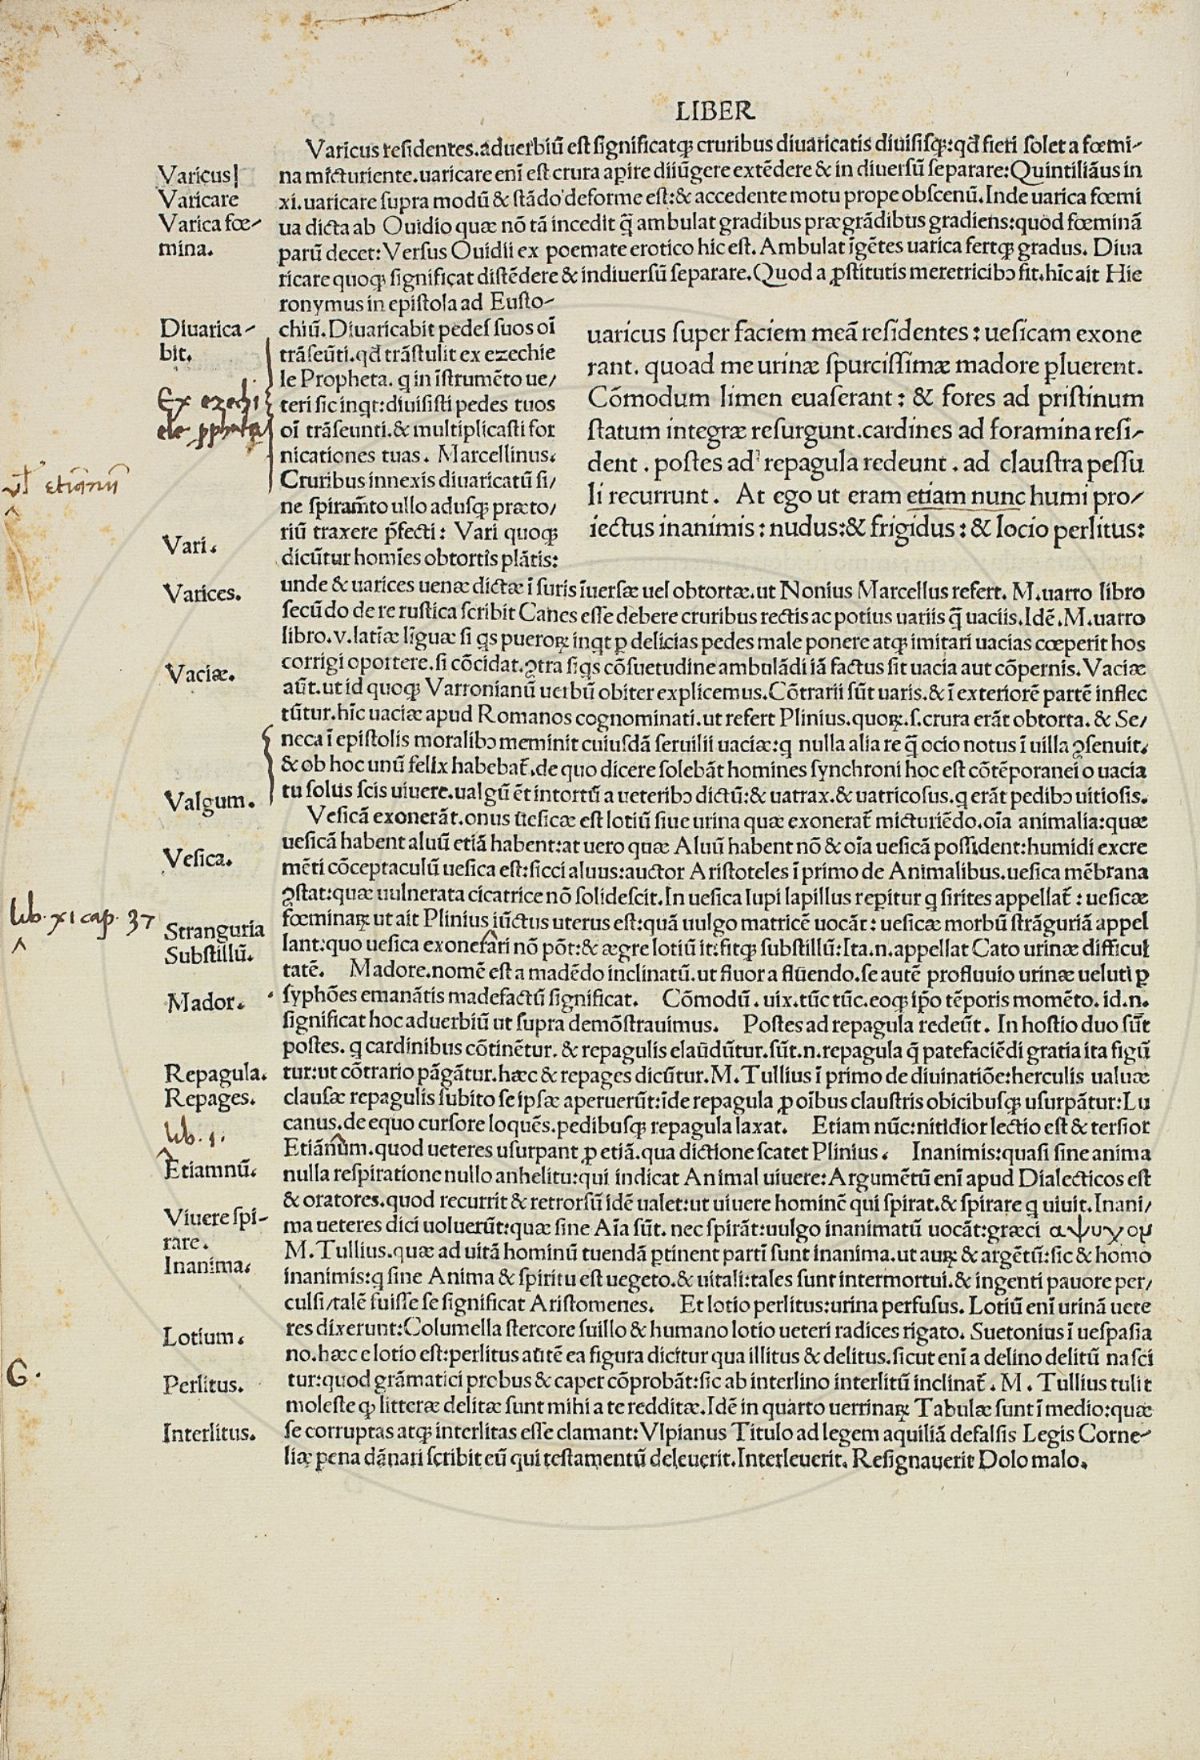 LIBER
Varicus residentes.aduerbiū est significatq; cruribus diuaricatis diuisisq;:qđ fieri solet a fœmi-
Varicus
na micturiente.uaricare enī est crura aꝑire diiūgere extēdere & in diuersū separare:Quintiliāus in
Varicare
xi.uaricare supra modū & stādo deforme est:& accedente motu prope obscenū.Inde uarica fœmi
Varica fœ-
ua dicta ab Ouidio quæ nō tā incedit q̄ ambulat gradibus prægrādibus gradiens:quod fœminā
mina.
parū decet:Versus Ouidii ex poemate erotico hic est.Ambulat īgētes uarica fertq; gradus. Diua
ricare quoq; significat distēdere & indiuersū separare.Quod a ꝓstitutis meretricibꝰ fit.hīc ait Hie
ronymus in epistola ad Eusto-
Diuarica-
chiū.Diuaricabit pedes suos oī
bit.
trāseūti.qđ trāstulit ex ezechie
le Propheta. q in īstrumēto ue/
Ex ezechi
teri sic inqt:diuisisti pedes tuos
ele ꝓpheta
oī trāseunti.& multiplicasti for
nicationes tuas. Marcellinus.
vł etiānū
Cruribus innexis diuaricatū si/
ne spiramīto ullo adusq; præto/
riū traxere p̄fecti: Vari quoq;
Vari.
dicūtur homīes obtortis plātis:
uaricus super faciem meā residentes: uesicam exone
rant. quoad me urinæ spurcissimæ madore ꝑluerent.
Cōmodum limen euaserant: & fores ad pristinum
statum integræ resurgunt.cardines ad foramina resi-
dent. postes ad repagula redeunt. ad claustra pessu
li recurrunt. At ego ut eram etiam nunc humi pro/
iectus inanimis: nudus:& frigidus: & locio perlitus:
unde & uarices uenæ dictæ ī suris īuersæ uel obtortæ.ut Nonius Marcellus refert. M.uarro libro
Varices.
secūdo de re rustica scribit Canes esse debere cruribus rectis ac potius uariis q̄ uaciis.Idē.M.uarro
libro.v.latīæ līguæ si qs pueroꝝ inqt ꝑ delicias pedes male ponere atq; imitari uacias cœperit hos
corrigi oportere.si cōcidat.ꝯtra siqs cōsuetudine ambulādi iā factus sit uacia aut cōpernis. Vaciæ
Vaciæ.
aūt.ut id quoq; Varronianū uerbū obiter explicemus.Cōtrarii sūt uaris.& ī exteriorē partē inflec
tūtur.hīc uaciæ apud Romanos cognominati.ut refert Plinius.quoꝝ.s.crura erāt obtorta. & Se/
neca ī epistolis moralibꝰ meminit cuiusdā seruilii uaciæ:q nulla alia re q̄ ocio notus ī uilla ꝯsenuit.
& ob hoc unū felix habebat̄.de quo dicere solebāt homines synchroni hoc est cōtēporanei o uacia
Valgum.
tu solus scis uiuere.ualgū ēt intortū a ueteribꝰ dictū:& uatrax.& uatricosus.q erāt pedibꝰ uitiosis.
Vesicā exonerāt.onus uesicæ est lotiū siue urina quæ exonerat̄ micturiēdo.oīa animalia:quæ
uesicā habent aluū etiā habent:at uero quæ Aluū habent nō & oīa uesicā possident:humidi excre
Vesica.
mēti cōceptaculū uesica est:sicci aluus:auctor Aristoteles ī primo de Animalibus.uesica mēbrana
ꝯstat:quæ uulnerata cicatrice nō solidescit.In uesica lupi lapillus reꝑitur q sirites appellat̄: uesicæ
lib. XI cap. 37
fœminaꝝ ut ait Plinius iūctus uterus est:quā uulgo matricē uocāt: uesicæ morbū strāguriā appel
Stranguria
lant:quo uesica exonerari nō pōt:& ægre lotiū it:fitq; substillū:Ita.n.appellat Cato urinæ difficul
Substillū.
tatē. Madore.nomē est a madēdo inclinatū.ut fluor a flūendo.se autē profluuio urinæ ueluti ꝑ
Mador.
syphōes emanātis madefactū significat. Cōmodū. uix.tūc tūc.eoq; ip̄o tēporis momēto. id.n.
significat hoc aduerbiū ut supra demōstrauimus. Postes ad repagula redeūt. In hostio duo sūt
postes. q cardinibus cōtinētur. & repagulis elaūdūtur.sūt.n.repagula q̄ patefaciēdi gratia ita figū
Repagula.
tur:ut cōtrario pāgātur.hæc & repages dicūtur.M.Tullius ī primo de diuinatiōe:herculis ualuæ
Repages.
clausæ repagulis subito se ipsæ aperuerūt:īde repagula ꝓ oībus claustris obicibusq; usurpātur:Lu
canus.de equo cursore loquēs.pedibusq; repagula laxat. Etiam nūc:nitidior lectio est & tersior
lib. 1.
Etiānūm.quod ueteres usurpant ꝓ etiā.qua dictione scatet Plinius. Inanimis:quasi sine anima
Etiamnū.
nulla respiratione nullo anhelitu:qui indicat Animal uiuere:Argumētū enī apud Dialecticos est
& oratores.quod recurrit & retrorsū idē ualet:ut uiuere hominē qui spirat.& spirare q uiuit.Inani/
Viuere spi-
ma ueteres dici uoluerūt:quæ sine Aīa sūt. nec spirāt:uulgo inanimatū uocāt:græci αψυχον
rare.
M.Tullius.quæ ad uitā hominū tuendā ꝑtinent partī sunt inanima.ut auꝝ & argētū:sic & homo
Inanima.
inanimis:q sine Anima & spiritu est uegeto.& uitali:tales sunt intermortui.& ingenti pauore per/
culsi/talē fuisse se significat Aristomenes. Et lotio perlitus:urina perfusus. Lotiū enī urinā uete
Lotium.
res dixerunt:Columella stercore suillo & humano lotio ueteri radices rigato. Suetonius ī uespasia
no.hæc e lotio est:perlitus aūtē ea figura dicitur qua illitus & delitus.sicut enī a delino delitū nasci
G.
Perlitus.
tur:quod grāmatici probus & caper cōprobāt:sic ab interlino interlitū inclinat̄. M. Tullius tulit
moleste q; litteræ delitæ sunt mihi a te redditæ.Idē in quarto uerrinaꝝ Tabulæ sunt ī medio:quæ
Interlitus.
se corruptas atq; interlitas esse clamant:Vlpianus Titulo ad legem aquiliā defalsis Legis Corne-
liæ pena dānari scribit eū qui testamentū deleuerit.Interleuerit. Resignauerit Dolo malo.